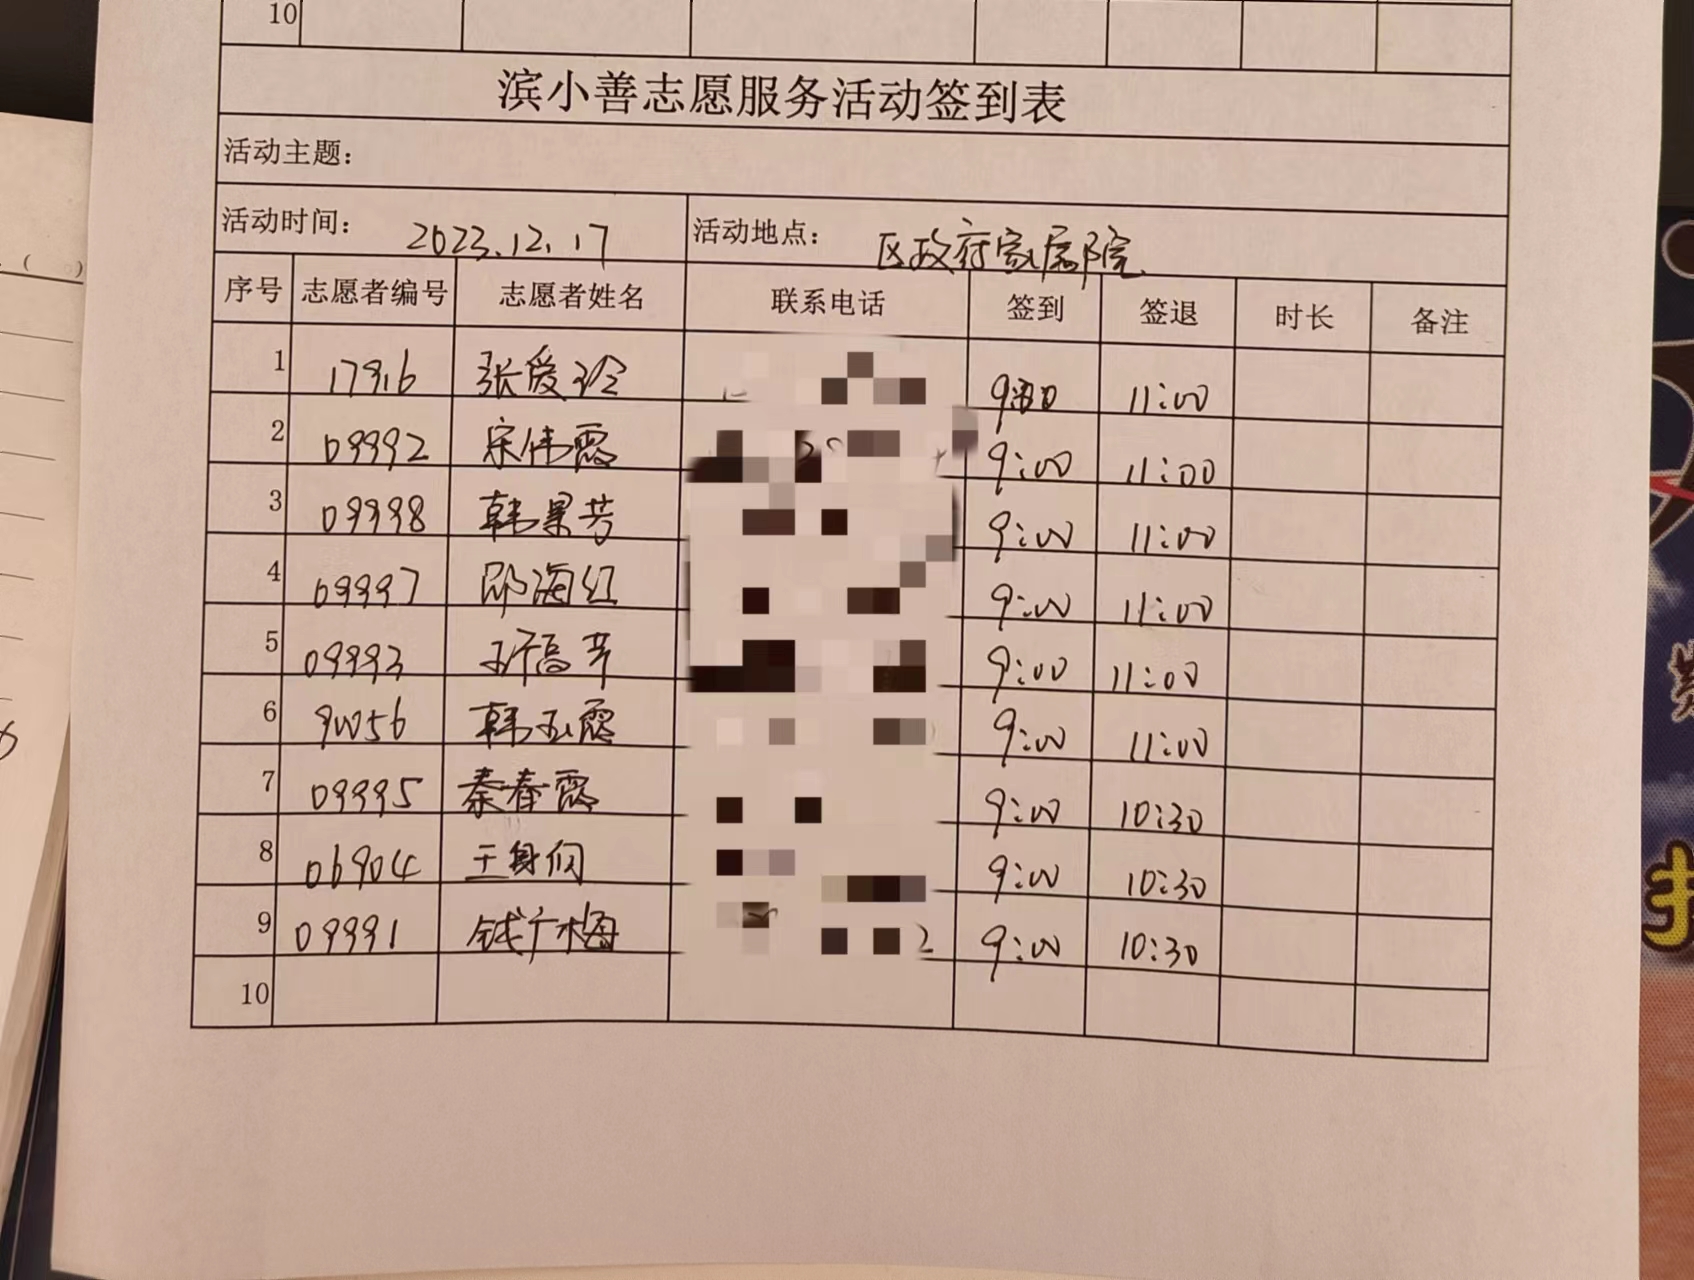 10
滨小善志愿服务活动签到表
活动主题：
活动时间： 2023.12.17 活动地点： 区政府家属院
序号 志愿者编号 志愿者姓名 联系电话 签到 签退 时长 备注
1 17916 张爱玲 9:00 11:00
2 09992 宋伟霞 9:00 11:00
3 09998 韩景芳 9:00 11:00
4 09997 邱海红 9:00 11:00
5 09993 9:00 11:00
6 90056 韩玉霞 9:00 11:00
7 09995 秦春霞 9:00 10:30
8 06904 9:00 10:30
9 09991 钱广梅 2 9:00 10:30
10